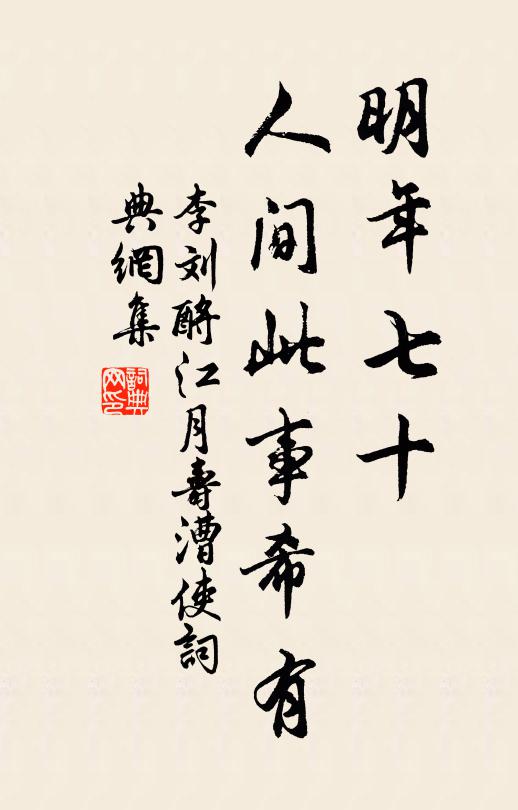 明年七十
人间此事希有
李刘酹江月寿漕使词
典網集
詞典網印